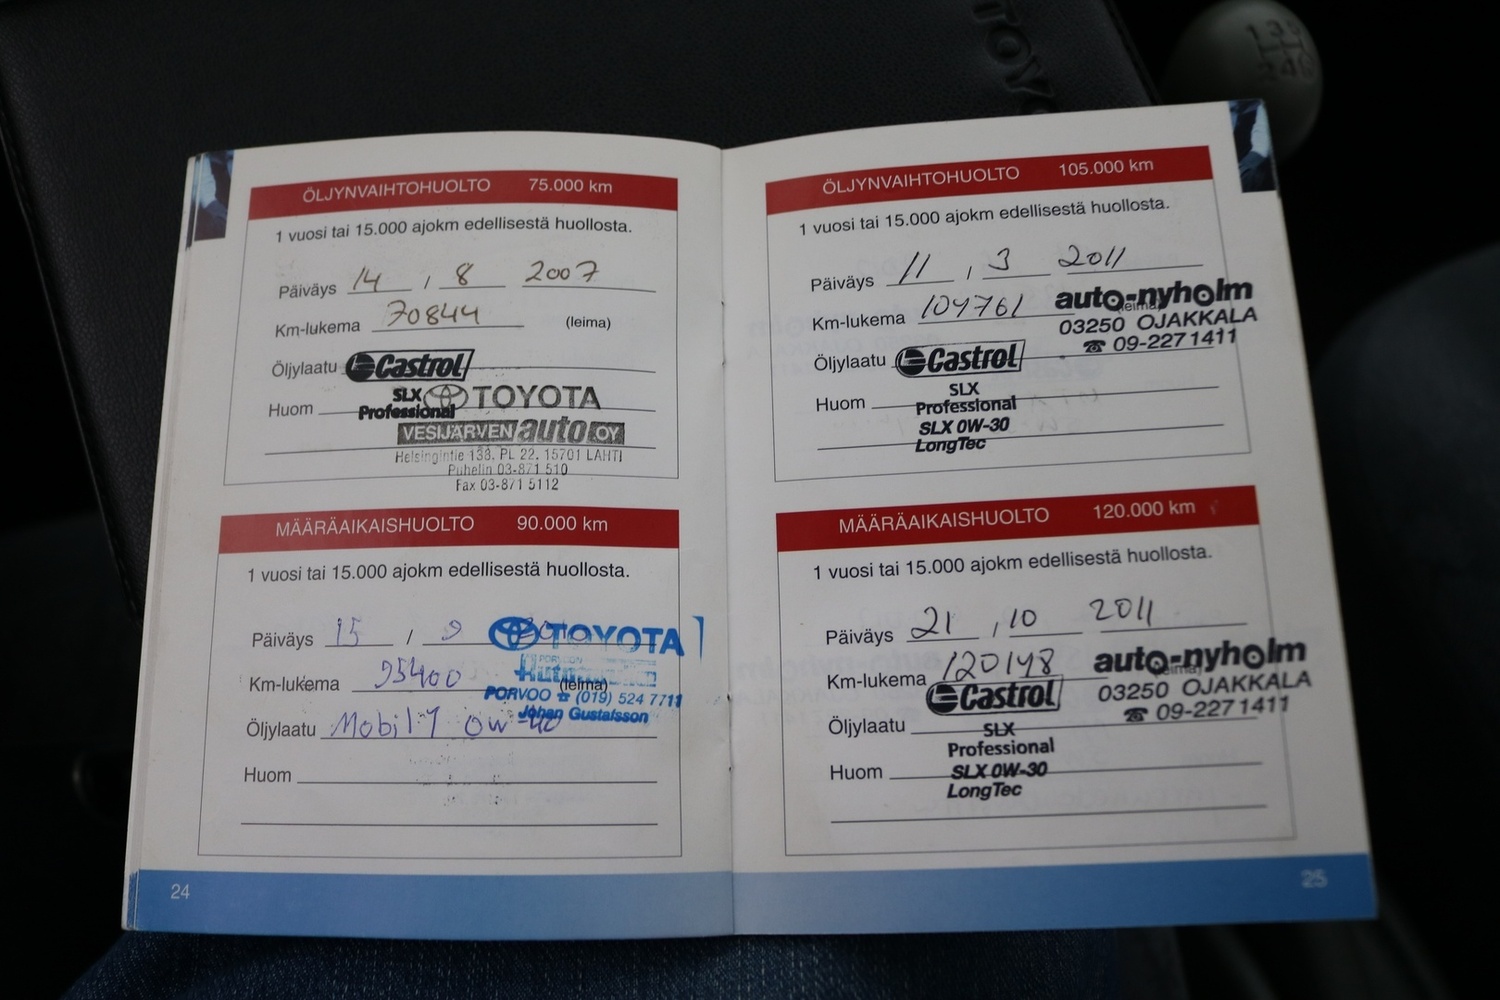 TOYO
1 3 5
2 4 6
ÖLJYNVAIHTOHUOLTO 75.000 km
1 vuosi tai 15.000 ajokm edellisestä huollosta.
Päiväys 14 , 8 2007
Km-lukema 70844 (leima)
Öljylaatu Castrol
SLX
Professional
Huom
TOYOTA
VESIJÄRVEN auto OY
Helsingintie 138. PL 22. 15701 LAHTI
Puhelin 03-871 510
Fax 03-871 5112
MÄÄRÄAIKAISHUOLTO 90.000 km
1 vuosi tai 15.000 ajokm edellisestä huollosta.
Päiväys 15 / 9
TOYOTA
PORVOON
Km-lukema 95400 (leima)
PORVOO ☎ (019) 524 7711
Johan Gustafsson
Öljylaatu Mobil 1 0W-40
Huom
24
ÖLJYNVAIHTOHUOLTO 105.000 km
1 vuosi tai 15.000 ajokm edellisestä huollosta.
Päiväys 11 , 3 2011
Km-lukema 104761 (leima)
auto-nyholm
03250 OJAKKALA
☎ 09-2271411
Öljylaatu Castrol
Huom
SLX
Professional
SLX 0W-30
LongTec
MÄÄRÄAIKAISHUOLTO 120.000 km
1 vuosi tai 15.000 ajokm edellisestä huollosta.
Päiväys 21 , 10 2011
Km-lukema 120148 (leima)
auto-nyholm
03250 OJAKKALA
☎ 09-2271411
Öljylaatu Castrol
SLX
Professional
Huom
SLX 0W-30
LongTec
25